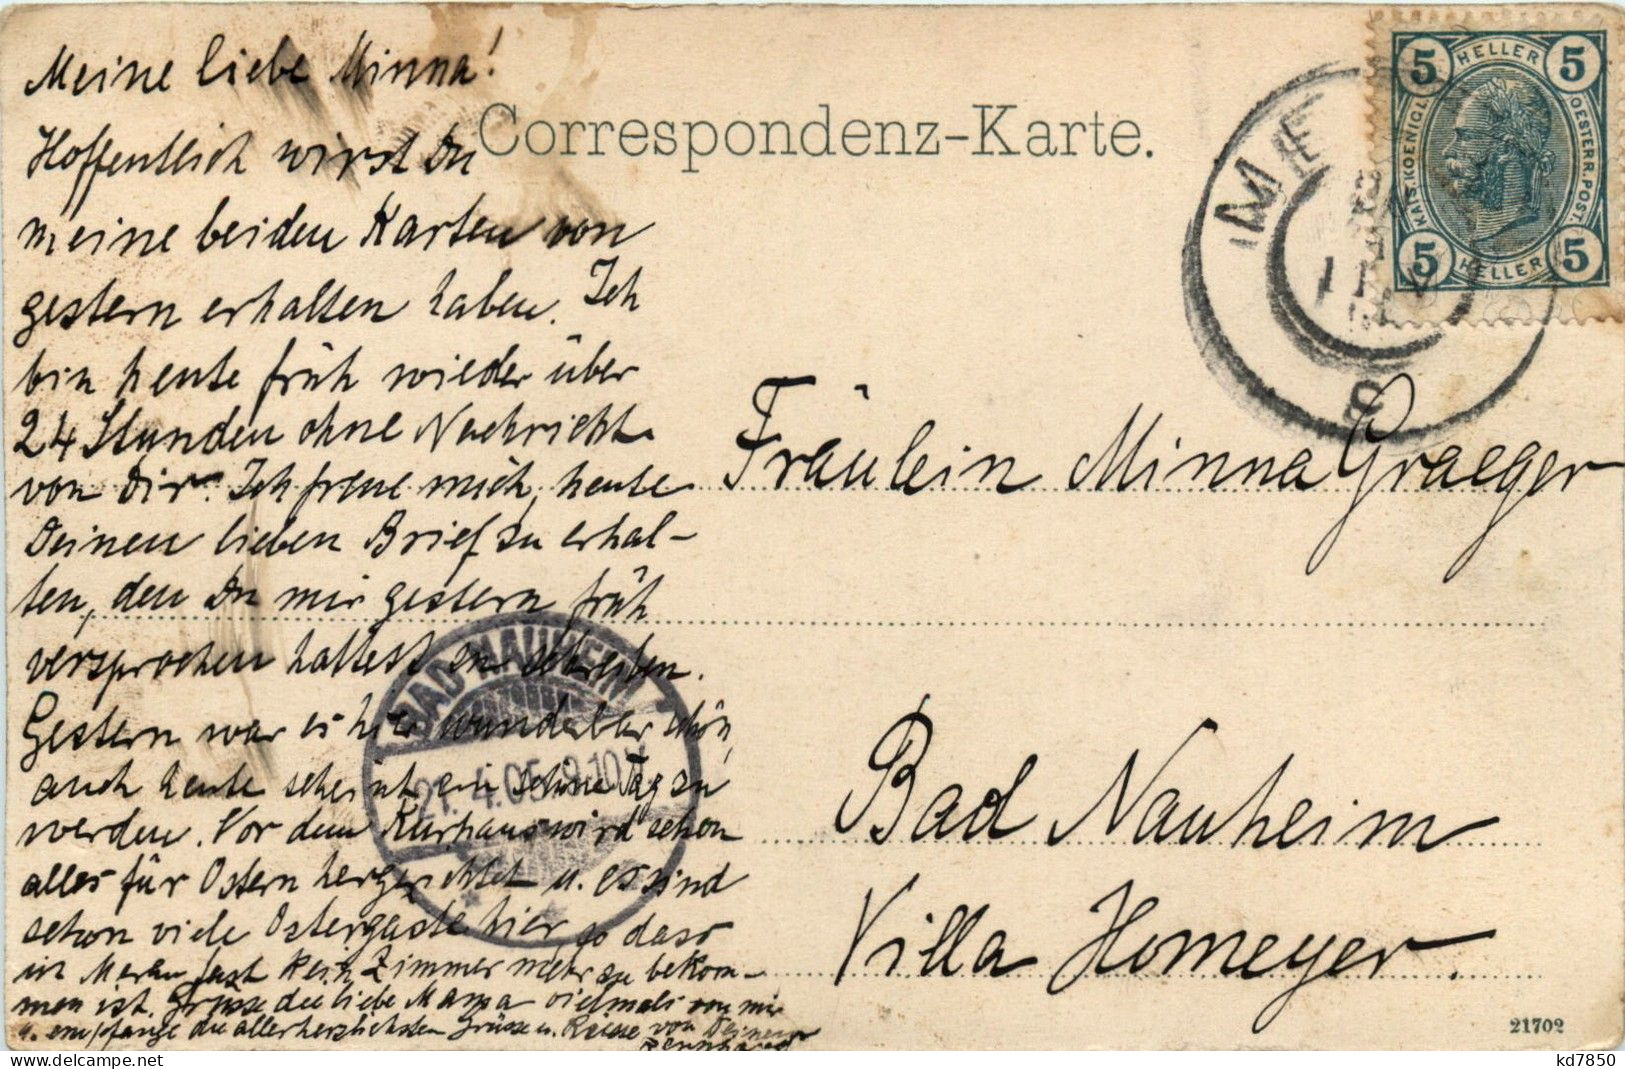 Meine liebe Minna!
Hoffentlich wirst Du
meine beiden Karten von
gestern erhalten haben. Ich
bin heute früh wieder über
24 Stunden ohne Nachricht
von Dir. Ich freue mich, heute
Deinen lieben Brief zu erhal-
ten, den Du mir gestern früh
versprochen hattest zu schreiben.
Gestern war es hier wunderbar schön,
auch heute scheint ein schöner Tag zu
werden. Vor dem Kurhaus wird schon
alles für Ostern hergerichtet u. es sind
schon viele Ostergäste hier, so dass
in Meran fast kein Zimmer mehr zu bekom-
men ist. Grüsse die liebe Mama vielmals von mir
u. empfange die allerherzlichsten Grüsse u. Küsse von Deinem
Correspondenz-Karte.
5 HELLER 5
KAIS. KOENIGL. OESTERR. POST.
5 HELLER 5
ME
BAD NAUHEIM
21.4.05. 9-10 V
Fräulein Minna Graeger
Bad Nauheim
Villa Homeyer.
21702
kd7850